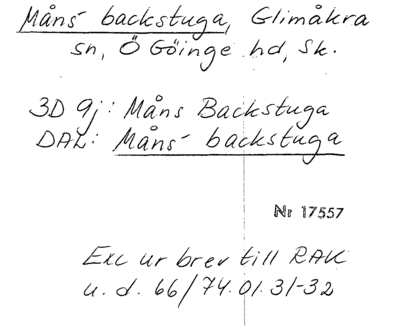 Måns backstuga, Glimåkra
sn, Ö Göinge hd, Sk.
3D 9j: Måns Backstuga
DAL: Måns backstuga
Nr 17557
Exc ur brev till RAK
u. d. 66/74.01.31-32